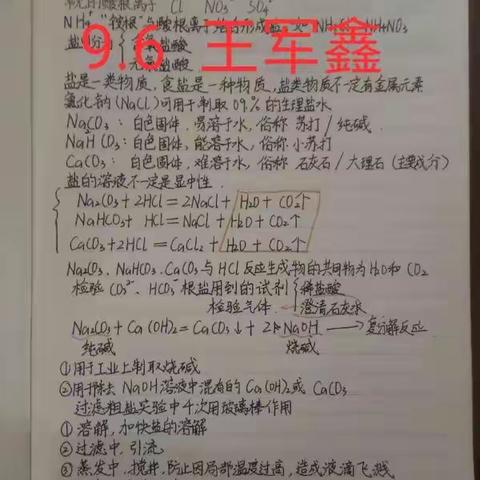 常见的酸根离子 Cl⁻ NO₃⁻ SO₄²⁻
NH₄⁺ "铵根"与酸根离子结合形成盐, 如 NH₄Cl NH₄NO₃
盐
含氧盐酸
无氧盐酸
9.6 王军鑫
盐是一类物质, 食盐是一种物质, 盐类物质不一定有金属元素
氯化钠(NaCl)可用于制取0.9%的生理盐水
Na₂CO₃: 白色固体, 易溶于水, 俗称 苏打/纯碱.
NaHCO₃: 白色固体, 能溶于水, 俗称 小苏打
CaCO₃: 白色固体, 难溶于水, 俗称 石灰石/大理石(主要成分)
盐的溶液不一定是显中性.
Na₂CO₃+2HCl=2NaCl+H₂O+CO₂↑
NaHCO₃+HCl=NaCl+H₂O+CO₂↑
CaCO₃+2HCl=CaCl₂+H₂O+CO₂↑
Na₂CO₃、NaHCO₃、CaCO₃与HCl反应生成物的共同物为H₂O和CO₂
检验CO₃²⁻、HCO₃⁻根盐用到的试剂 稀盐酸
检验气体. 澄清石灰水
Na₂CO₃+Ca(OH)₂=CaCO₃↓+2NaOH → 复分解反应
纯碱 烧碱
①用于工业上制取烧碱
②用于除去NaOH溶液中混有的Ca(OH)₂或CaCO₃
过滤粗盐实验中 次用玻璃棒作用
①溶解, 加快盐的溶解
②过滤中, 引流
③蒸发中, 搅拌, 防止因局部温度过高, 造成液滴飞溅